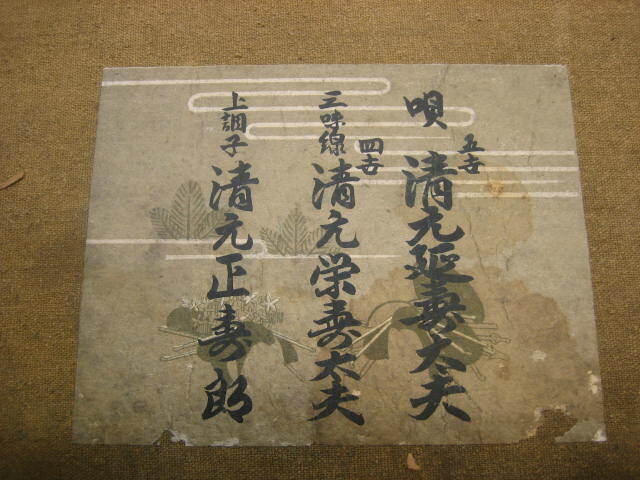 唄 清元延寿太夫
五世
三味線 清元栄寿太夫
四世
上調子 清元正寿郎